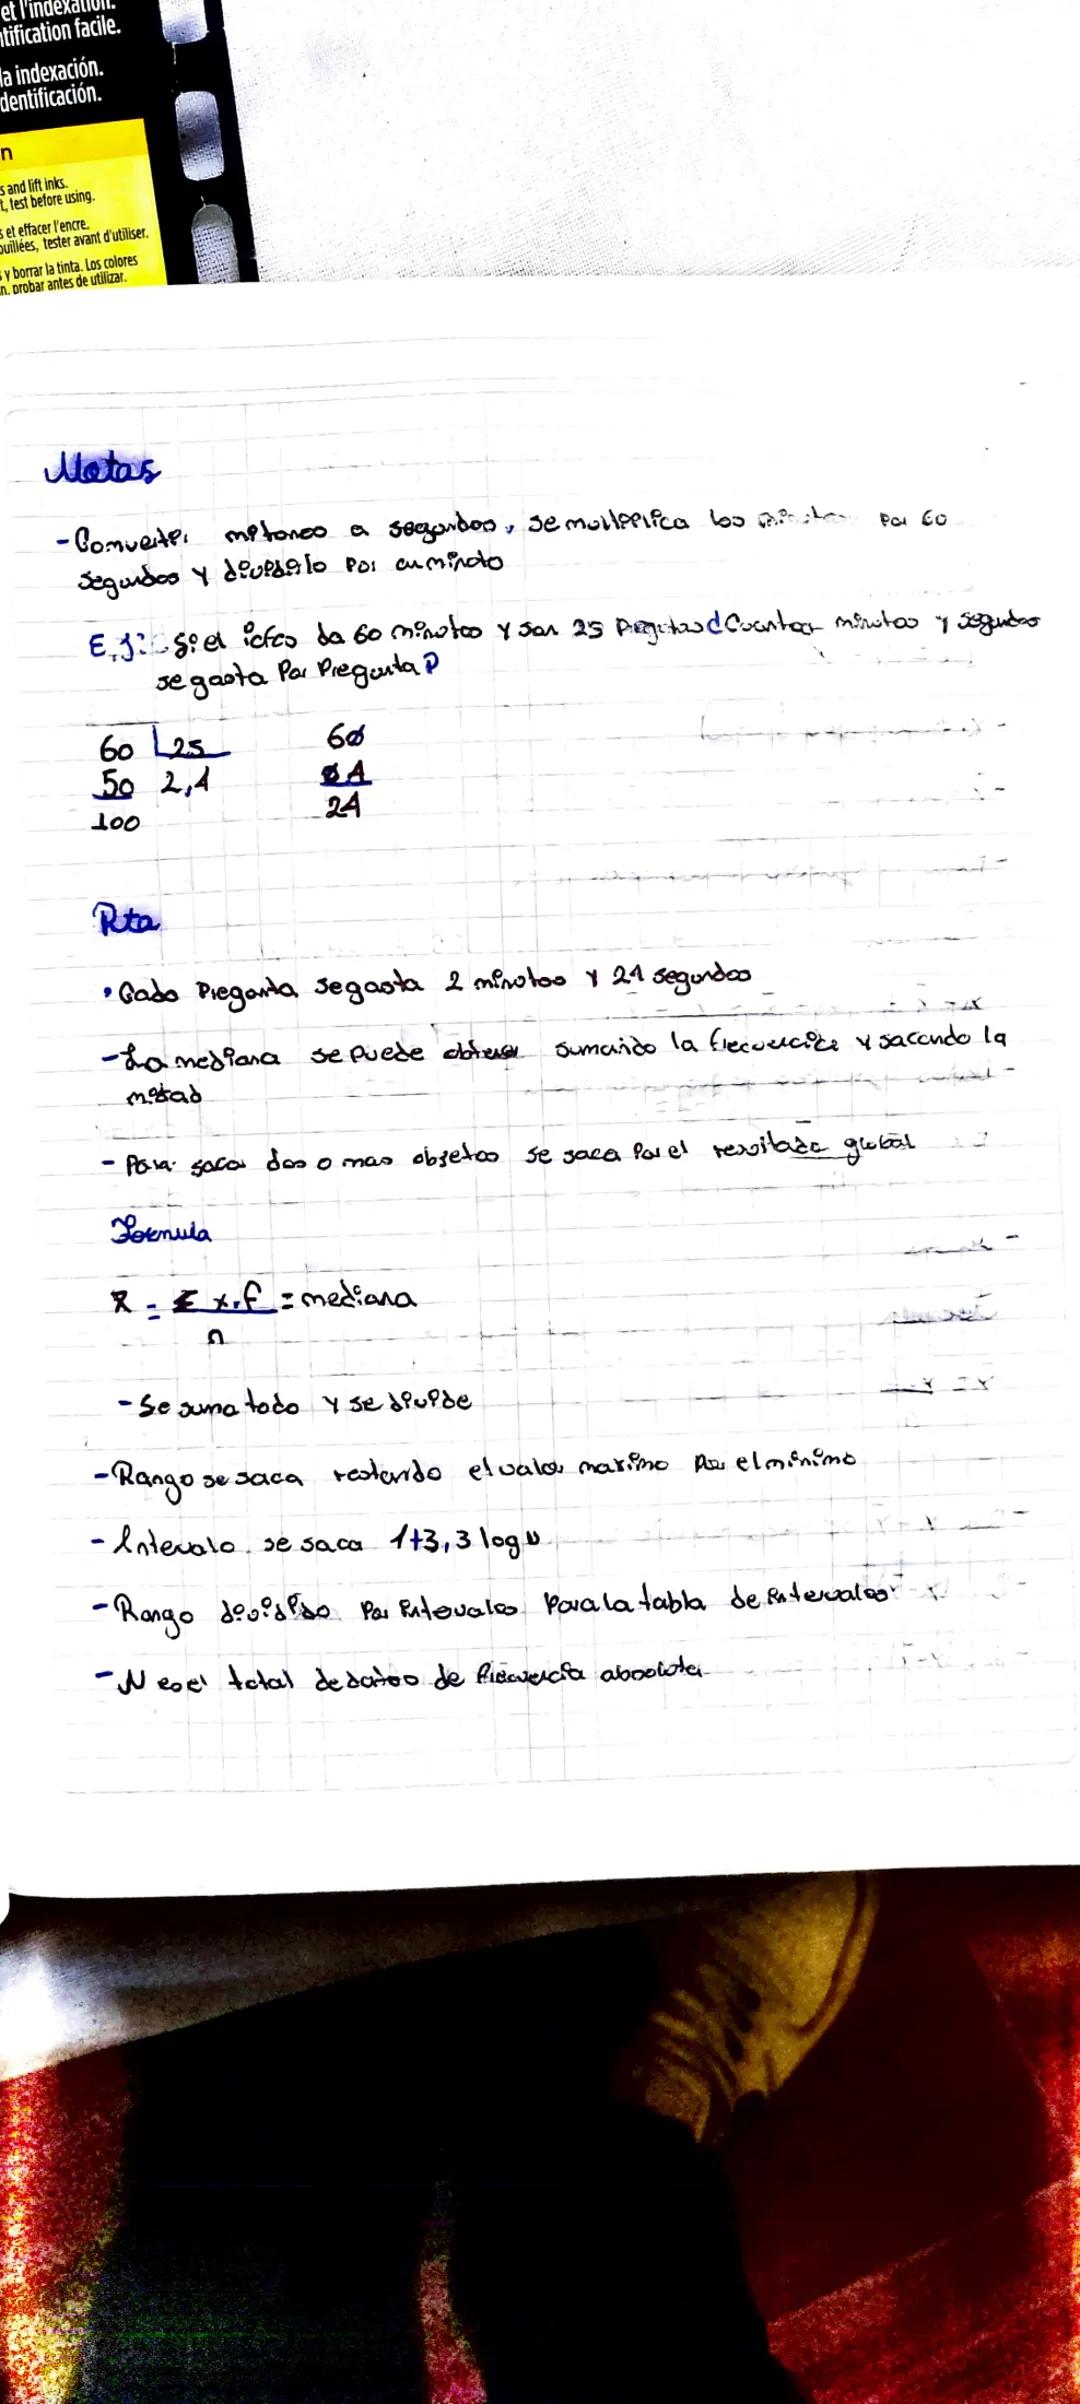 et l'indexation.
ntification facile.
la indexación.
dentificación.
n
s and lift inks.
t, test before using.
s et effacer l'encre.
ouillées, tester avant d'utiliser.
s y borrar la tinta. Los colores
n. probar antes de utilizar.
Notas
- Convertir minutos a segundos, se multiplica los minutos por 60
segundos y dividirlo por un minuto
Ej: Si el icfes da 60 minutos y son 25 preguntas ¿Cuantos minutos y segundos
se gasta Por Pregunta?
60 25 60
50 2,4 0,4
100 24
Rta
• Cada Pregunta se gasta 2 minutos y 24 segundos
- La mediana se puede obtener sumando la frecuencia y sacando la
mitad
- Para sacar dos o mas objetos se saca Por el resultado global
Formula
x̄ = Σ x.f = mediana
n
- Se suma todo y se divide
- Rango se saca restando el valor maximo Por el minimo
- Intervalo se saca 1+3,3 log N
- Rango dividido Por intervalos Para la tabla de intervalos
- N es el total de datos de frecuencia absoluta